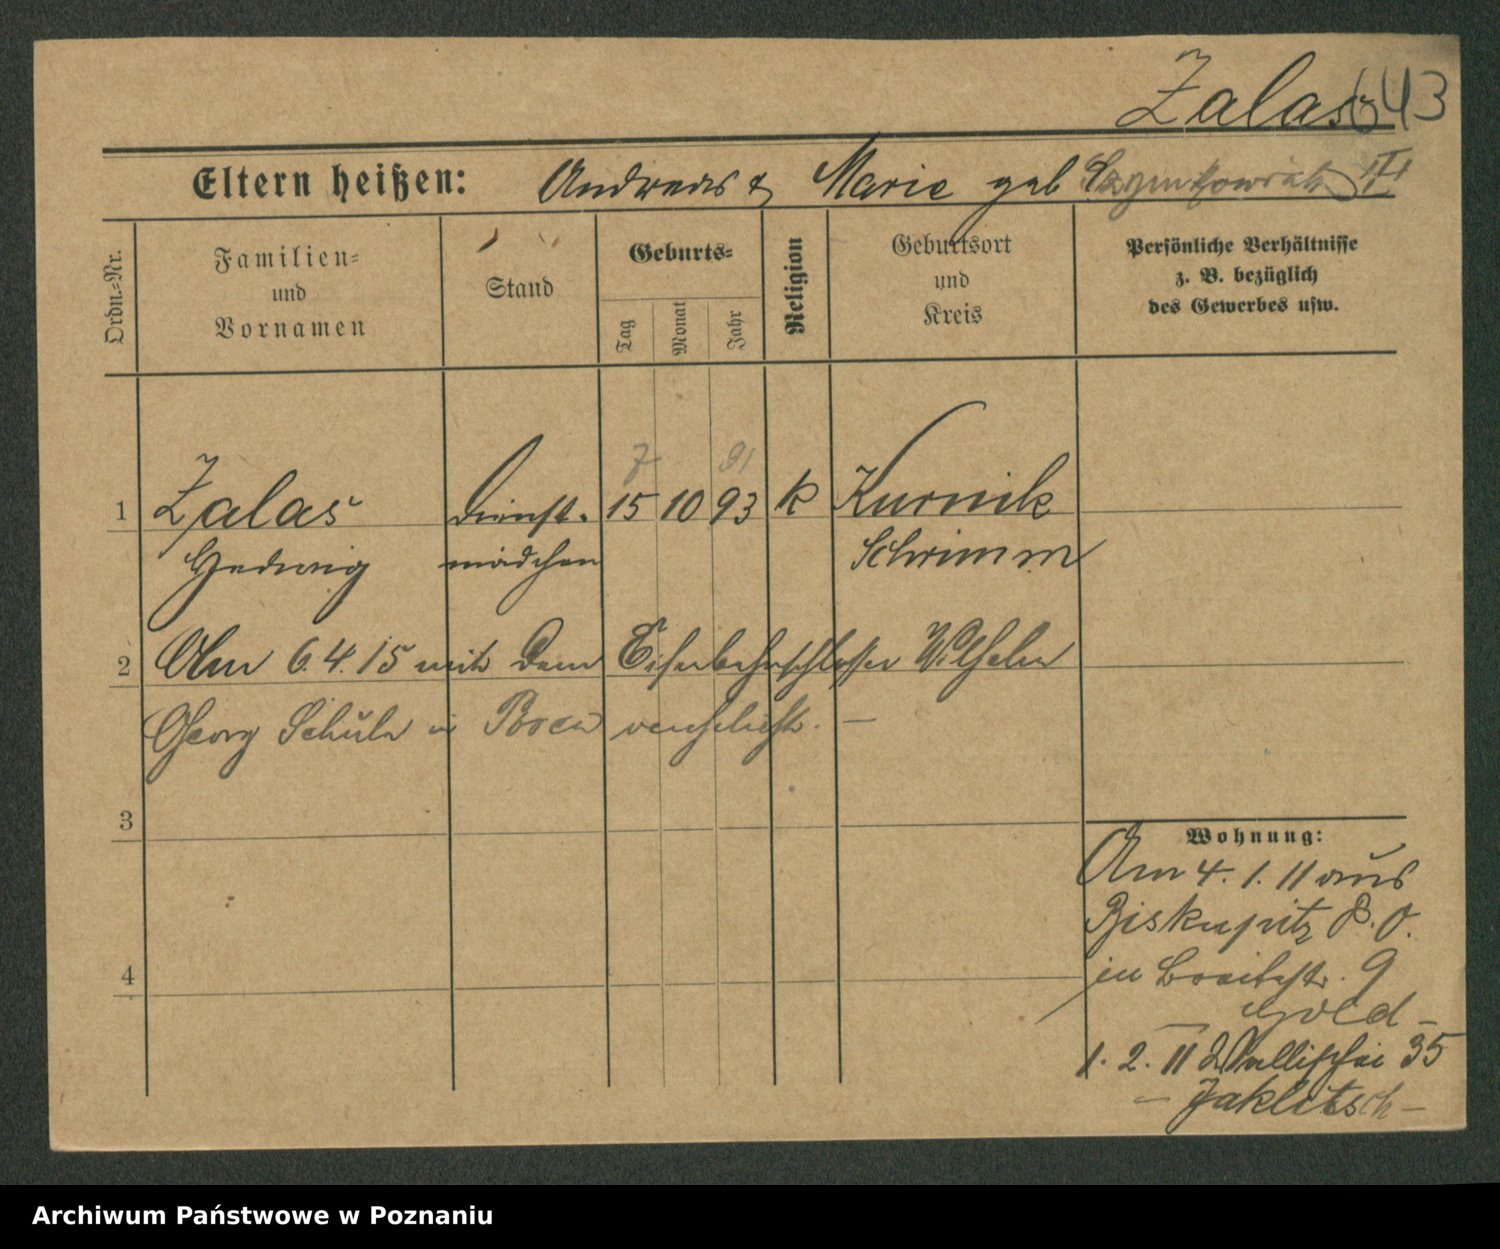 Zalas 643
Eltern heißen: Andreas & Marie geb III
Ordn.-Nr.
Familien- und Vornamen
Stand
Geburts-
Tag
Monat
Jahr
Religion
Geburtsort und Kreis
Persönliche Verhältnisse z. B. bezüglich des Gewerbes usw.
7 91
1 Zalas Dienst- 15 10 93 k Kurnik
Hedwig mädchen Schrimm
2 Am 6.4.15 mit dem Eisenbahnschlosser Wilhelm
Georg Schulz in Posen verehelicht. —
3
4
Wohnung:
Am 4. 1. 11 aus
Biskupitz P. O.
in Breitestr. 9
Gold —
1. 2. 11 Wallischei 35
— Jaklitsch —
Archiwum Państwowe w Poznaniu